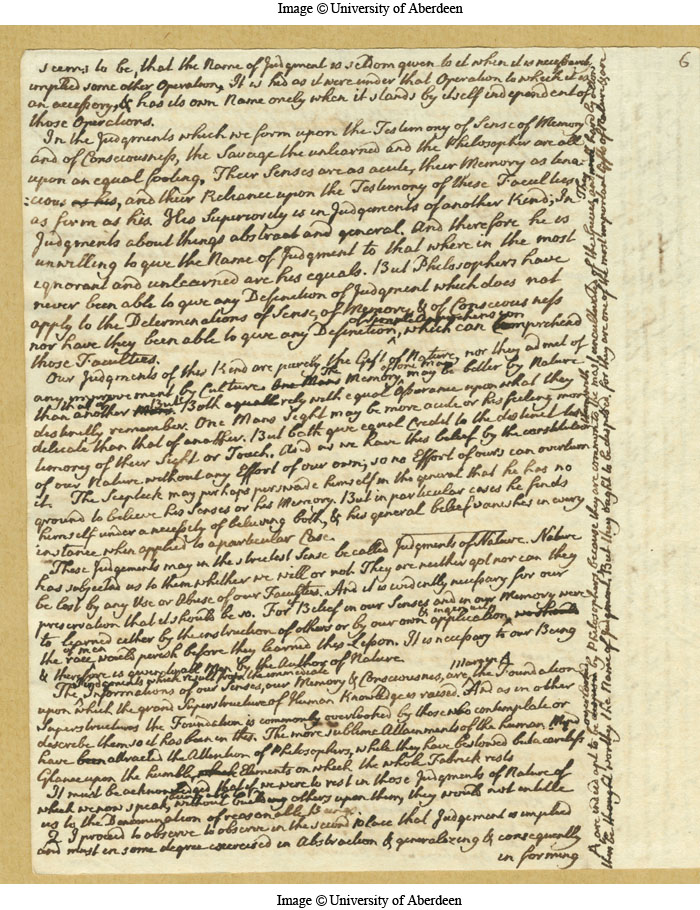 Image © University of Aberdeen
6
seems to be, that the Name of Judgment is seldom given to it when it is necessarily
implied some other Operation, It is hid as it were under that Operation to which it is
an accessory, & has its own Name onely when it stands by itself independent of
those Operations.
In the Judgments which we form upon the Testimony of Sense of Memory
and of Consciousness, the Savage the unlearned and the Philosopher are all
upon an equal footing. Their Senses are as acute, their Memory as tena-
:cious as his, and their Reliance upon the Testimony of these Faculties
as firm as his. His Superiority is in Judgements of another Kind; In
Judgments about things abstract and general. And therefore he is
unwilling to give the Name of Judgment to that where in the most
ignorant and unlearned are his equals. But Philosophers have
never been able to give any Definition of Judgment which does not
apply to the Determinations of Sense, of Memory & of Consciousness
nor have they been able to give any Definition, which can comprehend
those Faculties.
Our Judgments of this Kind are purely the Gift of Nature, nor they admit of
any improvement by Culture. The Memory of one man may be better by Nature
than that of another But Both rely with equal Assurance upon what they
distinctly remember. One Mans Sight may be more acute or his feeling more
delicate than that of another. But both give equal Credit to the distinct tes
timony of their Sight or Touch. And as we have this belief by the constitution
of our Nature without any Effort of our own; so no Effort of ours can overturn
it. The Sceptick may perhaps perswade himself in the general that he has no
ground to believe his Senses or his Memory. But in particular cases he finds
himself under a necessity of believing both, & his general belief vanishes in every
instance when applied to a particular Case.
These Judgements may in the strictest Sense be called Judgments of Nature. Nature
has subjected us to them whether we will or not. They are neither got nor can they
be lost by any Use or Abuse of our Faculties. And it is evidently necessary for our
preservation that it should be so. For Belief in our Senses and in our Memory were
to learned either by the instruction of others or by our own application & ingenuity
the race of men would perish before they learned this Lesson. It is necessary to our Being
& therefore is given to all Men by the Author of Nature.
Judgements which result from the immediate margin A
The Informations of our Senses, our Memory & Consciousness, are the Foundation
upon which the grand Superstructure of Human Knowledge is raised. And as in other
Superstructures the Foundation is commonly overlooked by those who contemplate or
describe them so it has been in this. The more sublime Attainments of the human Mind
have attracted the Attention of Philosophers, while they have bestowed but a careless
Glance upon the humble Elements on which the whole Fabrick rests
It must be acknowledged that if we were to rest in those Judgments of Nature of
which we now speak, without building others upon them, they would not entitle
us to the Denomination of reasonable
2 I proceed to observe to observe in the second place that Judgement is implied
and must in some degree exercised in Abstraction & generalizing & consequently
in forming
A are indeed apt to be overlooked by Philosophers, because they are common to the most uncultivated of the Species,
then be thought worthy the Name of Judgement. But they ought not to be despised, for they are one of the most important Gifts of Nature
Image © University of Aberdeen